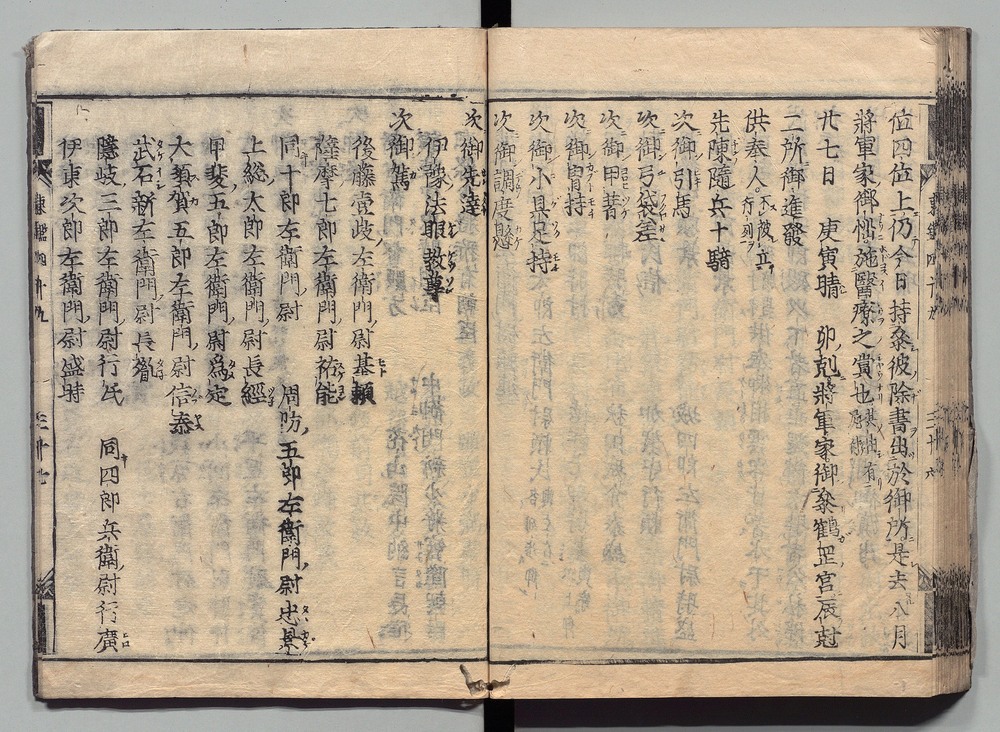 位四位上仍今日持参彼除書出於御所是去八月
將軍家御惱施醫療之賞也
廿七日　庚寅晴　卯剋將軍家御参鶴岡宮辰尅
二所御進發
供奉人不及立行列
先陳隨兵十騎
次御引馬
次御弓袋差
次御甲着
次御冑持
次御小具足持
次御調度懸
次御先達
伊豫法眼教尊
次御駕
後藤壹岐左衛門尉基頼
薩摩七郎左衛門尉祐能
同十郎左衛門尉　周防五郎左衛門尉忠景
上総太郎左衛門尉長經
甲斐五郎左衛門尉為定
大須賀五郎左衛門尉信泰
武石新左衛門尉長胤
隠岐三郎左衛門尉行氏　同四郎兵衛尉行廣
伊東次郎左衛門尉盛時